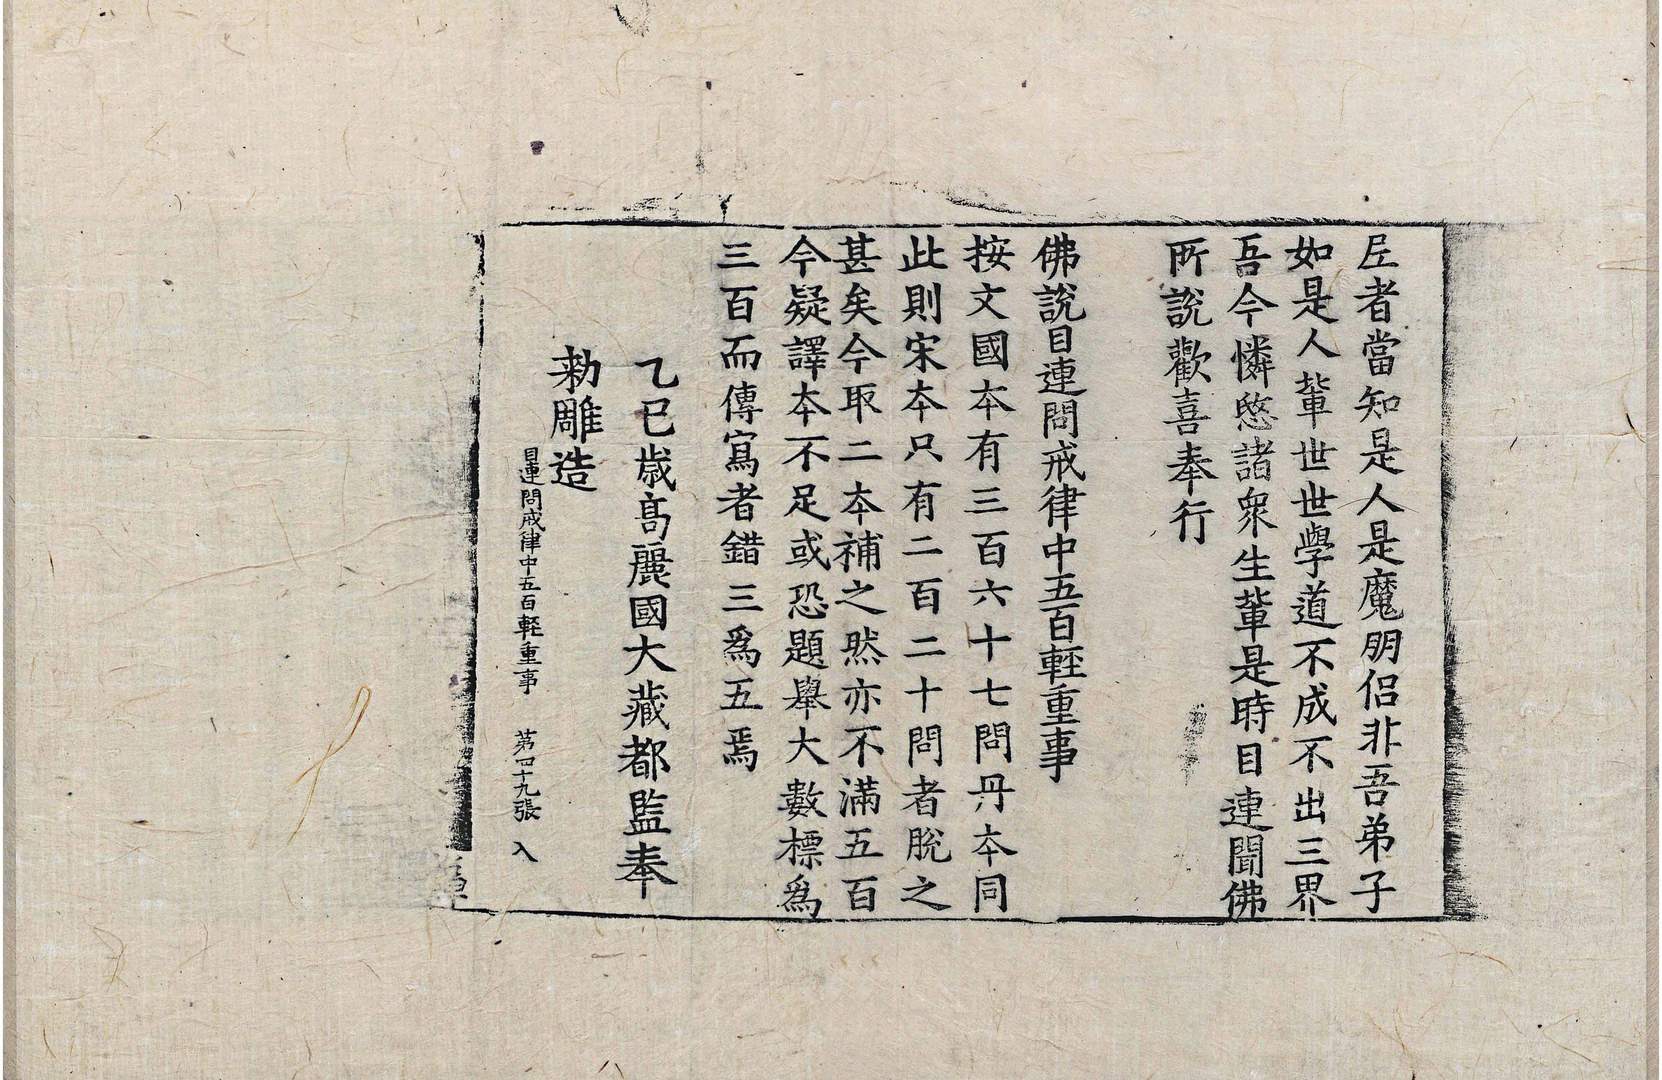 𡊄者當知是人是魔朋侶非吾弟子
如是人輩世世學道不成不出三界
吾今憐愍諸衆生輩是時目連聞佛
所說歡喜奉行
佛說目連問戒律中五百輕重事
按文國本有三百六十七問丹本同
此則宋本只有二百二十問者脫之
甚矣今取二本補之然亦不滿五百
今疑譯本不足或恐題舉大數標爲
三百而傳寫者錯三爲五焉
乙巳歲高麗國大藏都監奉
勑雕造
目連問戒律中五百輕重事 第四十九張 入